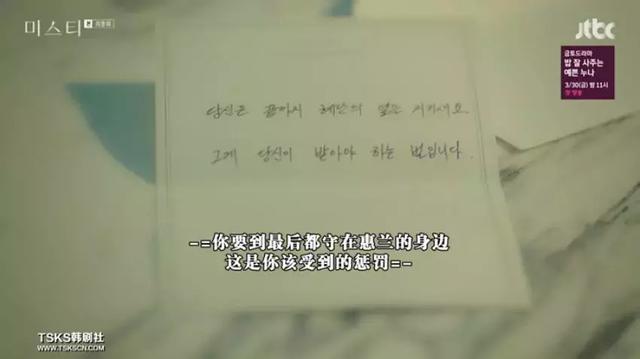 미스티
최종회
jtbc
금토드라마
밥 잘 사주는
예쁜 누나
3/30(금) 밤 11시
첫 방송
당신은 끝까지 혜란의 옆을 지키세요.
그게 당신이 받아야 하는 벌입니다.
-=你要到最后都守在惠兰的身边
这是你该受到的惩罚=-
TSKS韩剧社
WWW.TSKSCN.COM